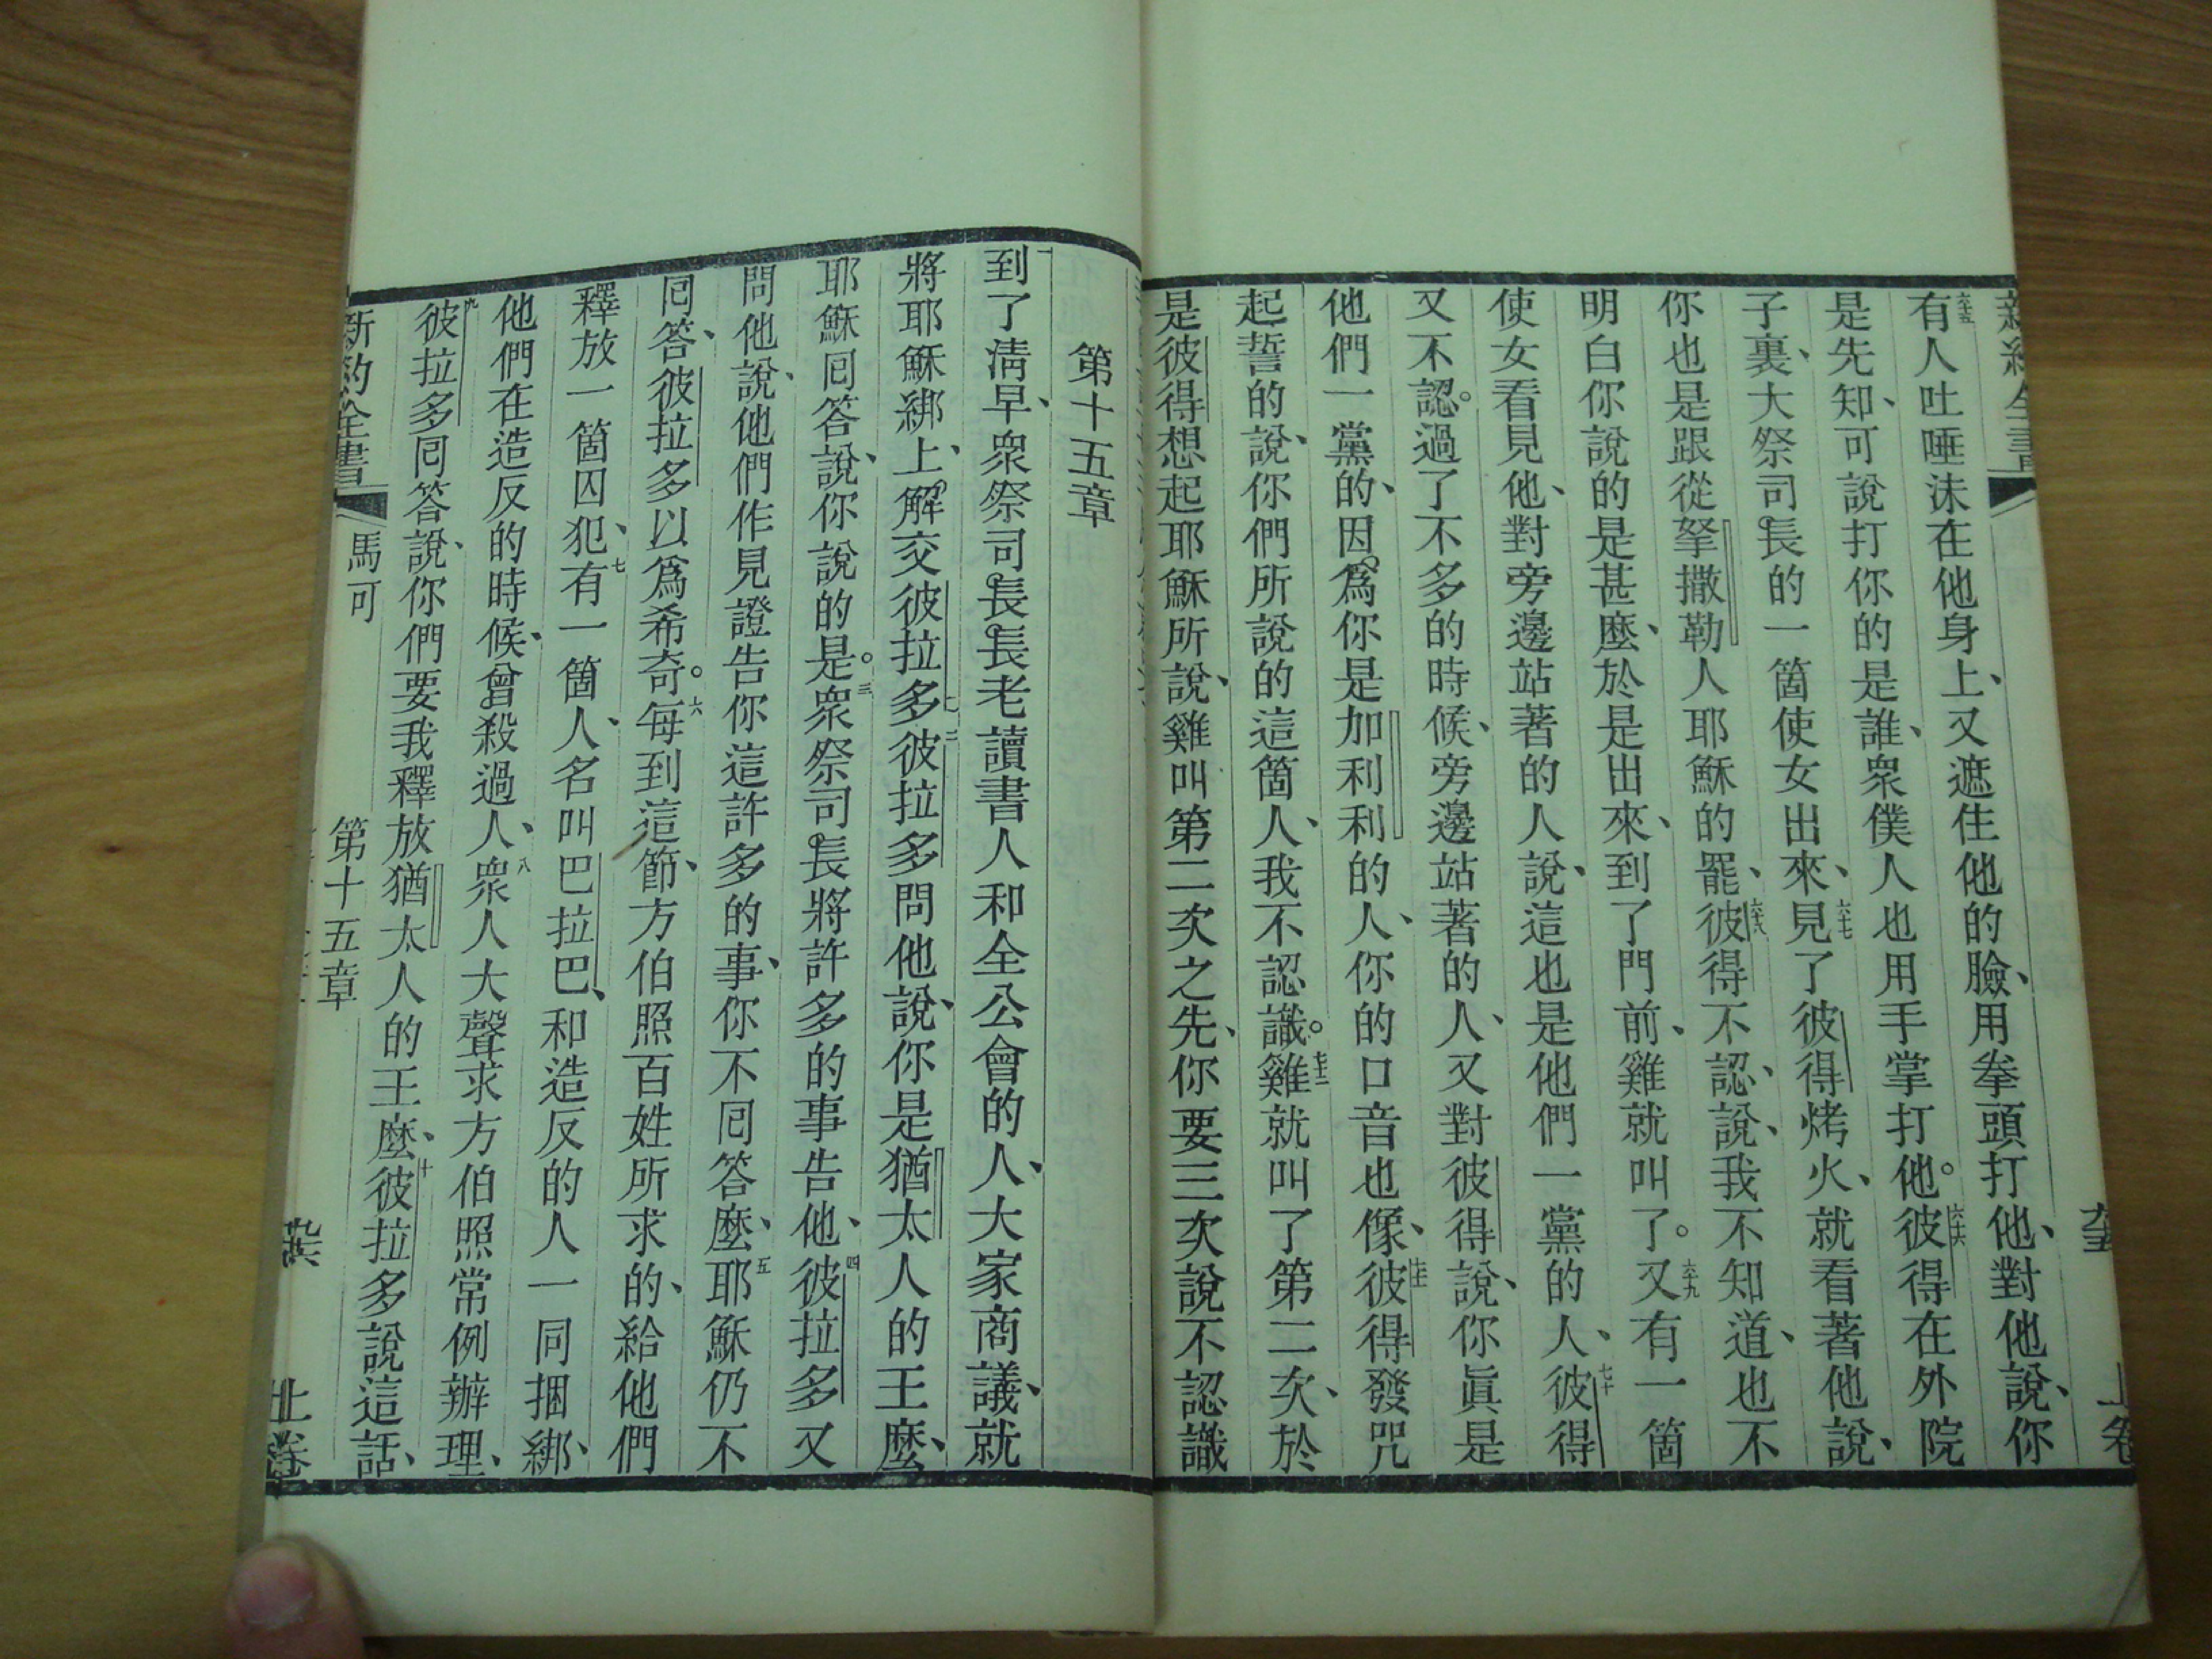 新約全書
上卷
有人吐唾沫在他身上、又遮住他的臉、用拳頭打他、對他說、你
是先知、可說打你的是誰、衆僕人也用手掌打他。彼得在外院
子裏、大祭司長的一箇使女出來、見了彼得烤火、就看著他說、
你也是跟從拏撒勒人耶穌的罷、彼得不認、說、我不知道、也不
明白你說的是甚麼、於是出來、到了門前、雞就叫了。又有一箇
使女看見他、對旁邊站著的人說、這也是他們一黨的人、彼得
又不認。過了不多的時候、旁邊站著的人、又對彼得說、你眞是
他們一黨的、因爲你是加利利的人、你的口音也像、彼得發咒
起誓的說、你們所說的這箇人、我不認識。雞就叫了第二次、於
是彼得想起耶穌所說、雞叫第二次之先、你要三次說不認識
第十五章
一到了淸早、衆祭司長長老讀書人和全公會的人、大家商議、就
將耶穌綁上、解交彼拉多二彼拉多問他說、你是猶太人的王麼、
耶穌囘答說、你說的是。三衆祭司長將許多的事告他、四彼拉多又
問他說、他們作見證告你這許多的事、你不囘答麼、五耶穌仍不
囘答、彼拉多以爲希奇。六每到這節、方伯照百姓所求的、給他們
釋放一箇囚犯、七有一箇人、名叫巴拉巴、和造反的人一同捆綁、
他們在造反的時候、曾殺過人、八衆人大聲求方伯照常例辦理、
九彼拉多囘答說、你們要我釋放猶太人的王麼、十彼拉多說這話、
新約全書
馬可
第十五章
上卷